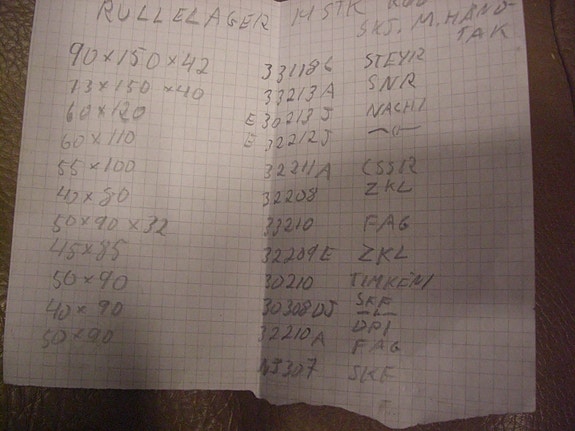 RULLELAGER 14 STK
SKJ. M. HAND-
TAK
90×150×42 33118C STEYR
73×150×40 33213A SNR
60×120 E30213J NACHI
60×110 E32212J -"-
55×100 32211A CSSR
40×80 32208 ZKL
50×90×32 33210 FAG
45×85 32209E ZKL
50×90 30210 TIMKEN
40×90 30308DJ SKF
50×90 32210A DPI
FAG
NJ307 SKF